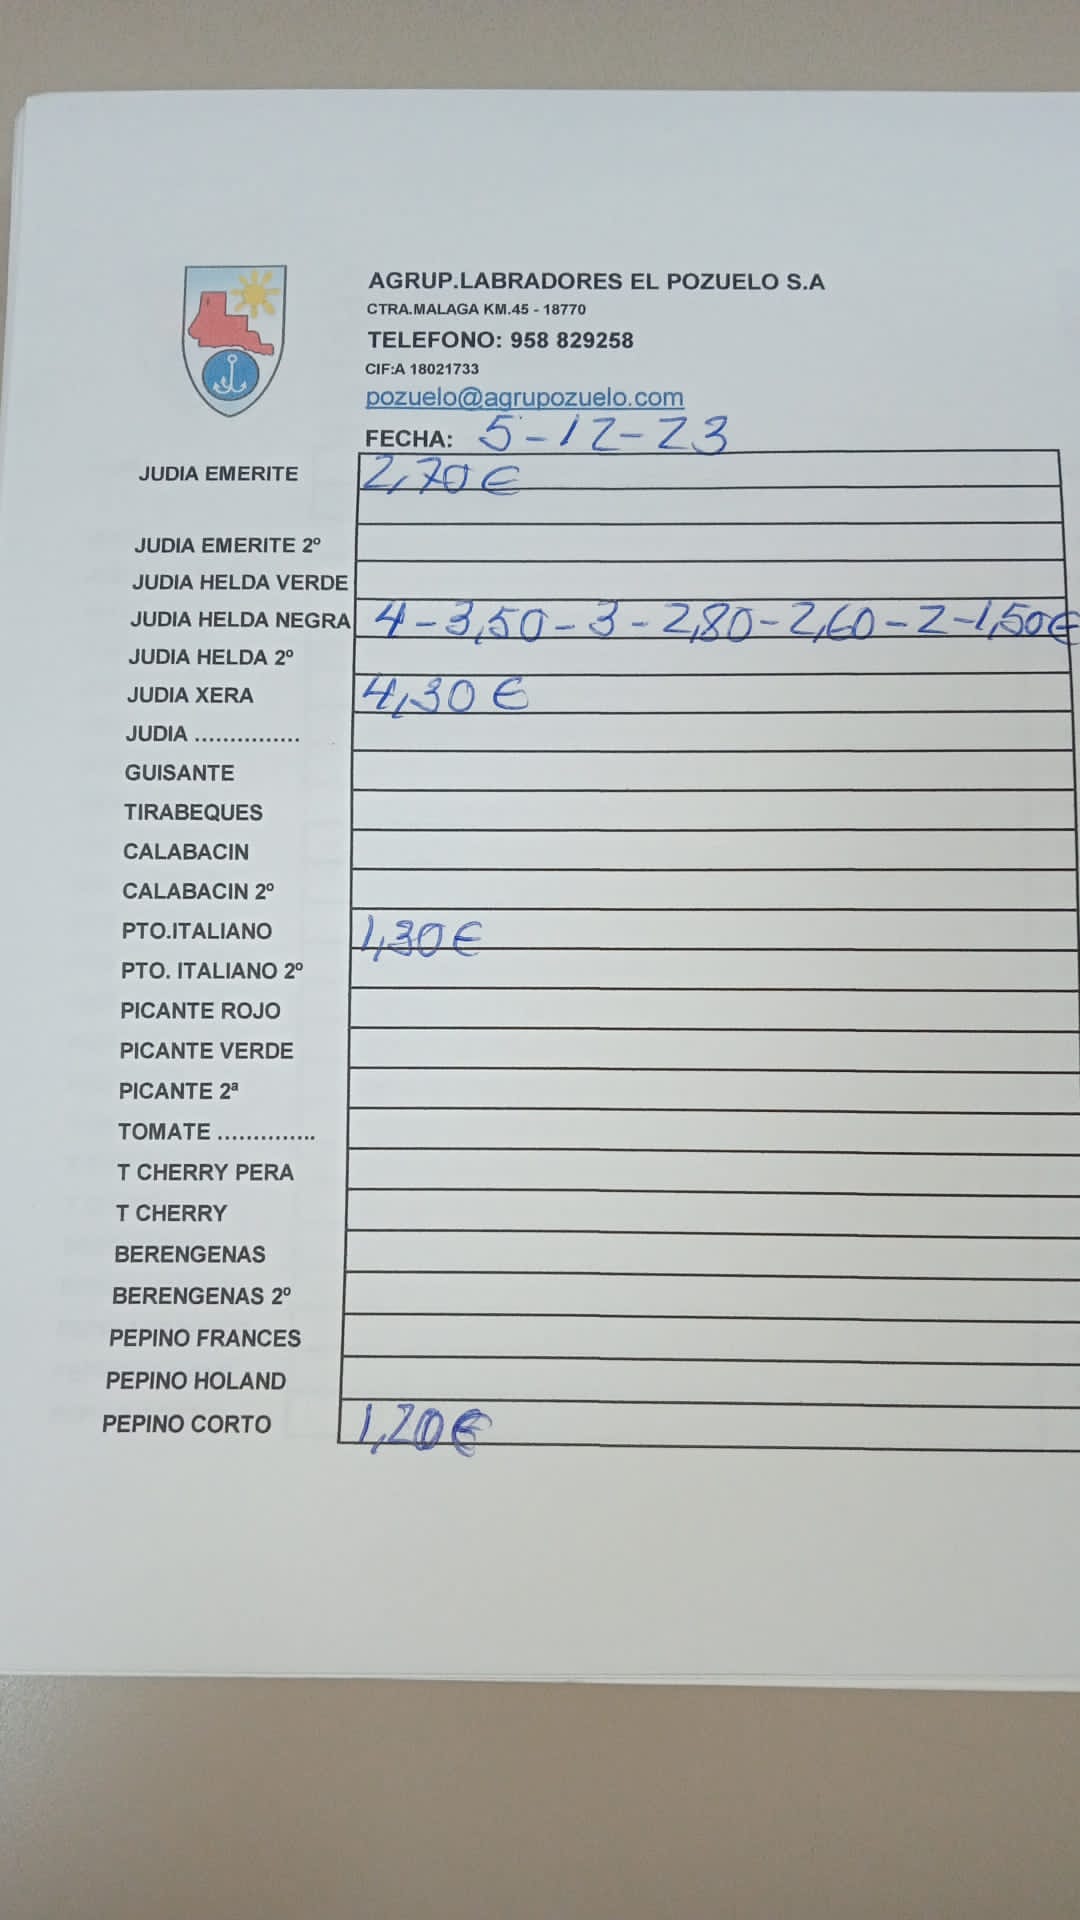 AGRUP.LABRADORES EL POZUELO S.A
CTRA.MALAGA KM.45 - 18770
TELEFONO: 958 829258
CIF:A 18021733
pozuelo@agrupozuelo.com
FECHA: 5-12-23
JUDIA EMERITE 2,70€
JUDIA EMERITE 2º
JUDIA HELDA VERDE
JUDIA HELDA NEGRA 4-3,50-3-2,80-2,60-2-1,50€
JUDIA HELDA 2º
JUDIA XERA 4,30€
JUDIA ...............
GUISANTE
TIRABEQUES
CALABACIN
CALABACIN 2º
PTO.ITALIANO 1,30€
PTO. ITALIANO 2º
PICANTE ROJO
PICANTE VERDE
PICANTE 2ª
TOMATE ..............
T CHERRY PERA
T CHERRY
BERENGENAS
BERENGENAS 2º
PEPINO FRANCES
PEPINO HOLAND
PEPINO CORTO 1,20€